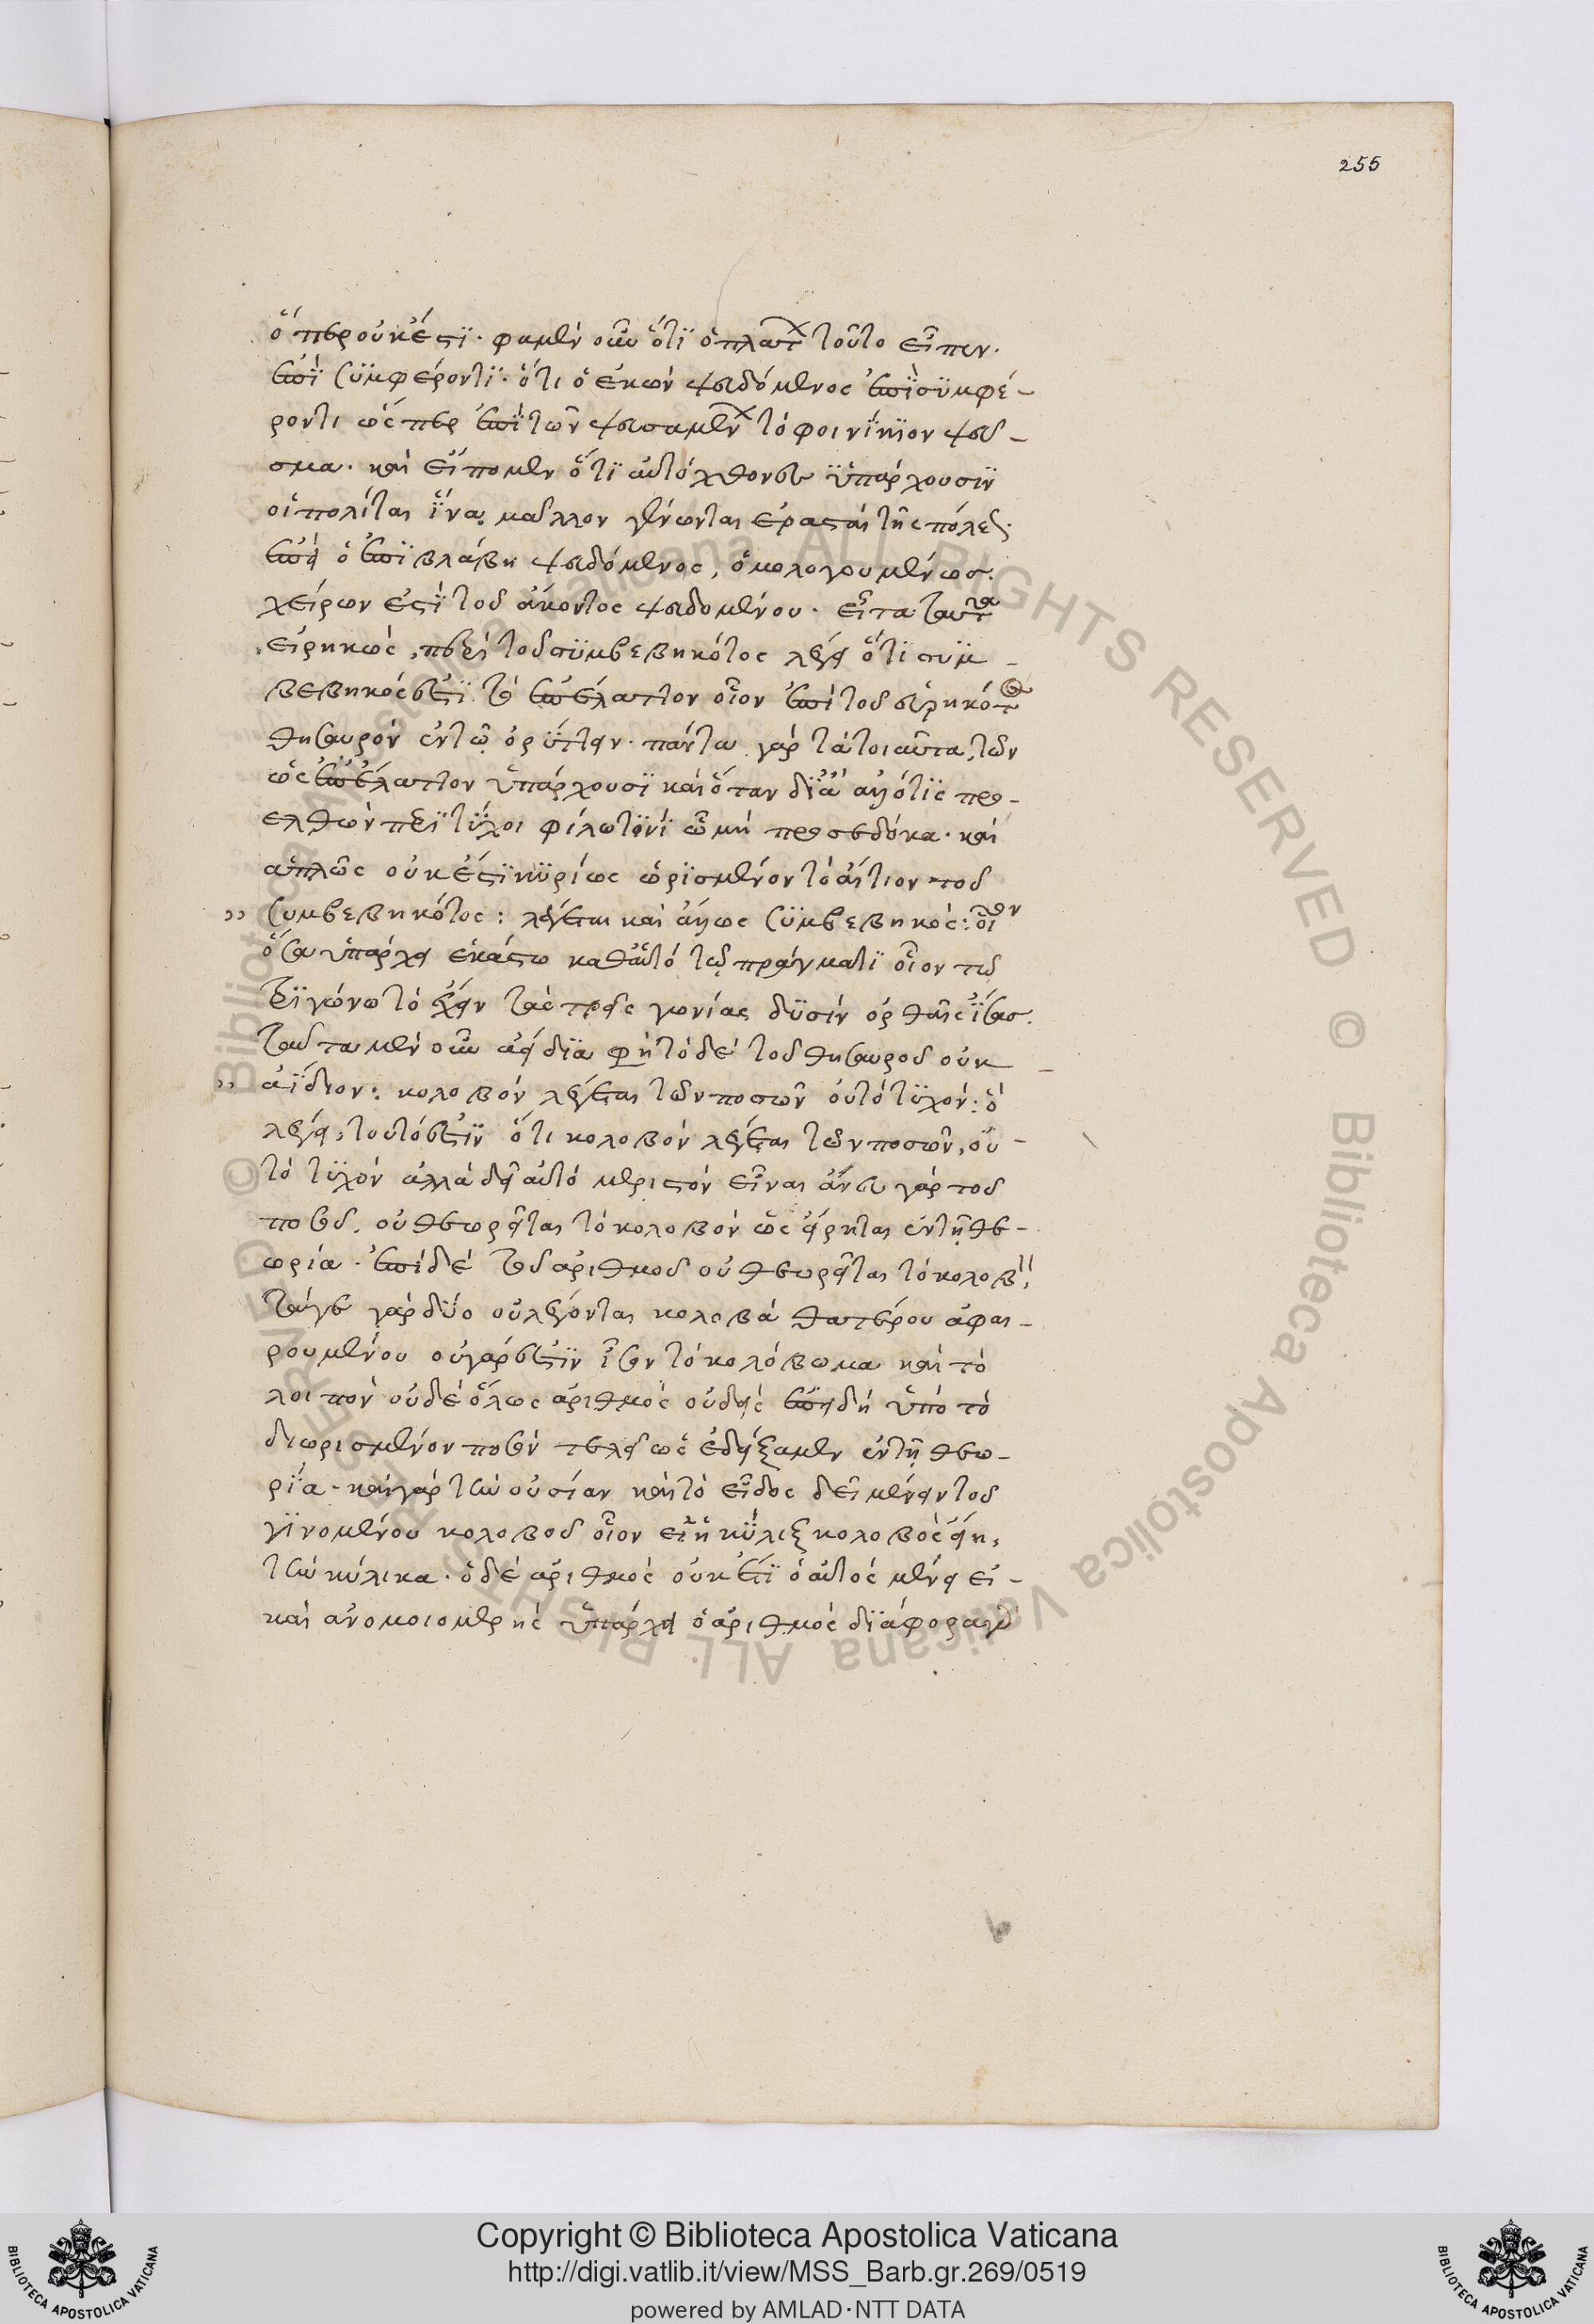 255
ὅπερ οὐκ ἔστι. φαμὲν οὖν ὅτι ὁ πλάτ τοῦτο εἶπεν.
ἐπὶ συμφέροντι. ὅτι ὁ ἑκὼν ψευδόμενος ἐπὶ συμφέ-
ροντι ὥσπερ ἐπὶ τῶν ψευσαμέν τὸ φοινίκιον ψεῦ-
σμα. καὶ εἴπομεν ὅτι αὐτόχθονες ὑπάρχουσιν
οἱ πολίται ἵνα μᾶλλον γένωνται ἐρασταὶ τῆς πόλεως.
ἐπεὶ ὁ ἐπὶ βλάβη ψευδόμενος, ὁμολογουμένως.
χείρων ἐστὶ τοῦ ἄκοντος ψευδομένου. εἶτα ταῦτα
εἰρηκὼς, περὶ τοῦ συμβεβηκότος λέγει ὅτι συμ-
βεβηκός ἐστι τὸ ἐπ' ἔλαττον οἷον ἐπὶ τοῦ εὑρηκότος
θησαυρὸν ἐν τῷ ὀρύττειν. πάντα γὰρ τὰ τοιαῦτα, τῶν
ὡς ἐπ' ἔλαττον ὑπάρχουσι καὶ ὅταν δι' ἄλλό τις προ-
ελθὼν περιτύχοι φίλω τινὶ ᾧ μὴ προσεδόκα. καὶ
ἁπλῶς οὐκ ἔστι κυρίως ὡρισμένον τὸ αἴτιον τοῦ
" συμβεβηκότος: λέγεται καὶ ἄλλως συμβεβηκός: οἷον
ὅσα ὑπάρχει ἑκάστω καθ' αὑτὸ τῷ πράγματι οἷον τῷ
τριγώνω τὸ ἔχειν τὰς τρεῖς γωνίας δυσὶν ὀρθαῖς ἴσας.
ταῦτα μὲν οὖν ἀίδια φησὶ τὸ δὲ τοῦ θησαυροῦ οὐκ
" ἀΐδιον: κολοβὸν λέγεται τῶν ποσῶν οὐ τὸ τυχόν: ὃ
λέγει, τοῦτό ἐστιν ὅτι κολοβὸν λέγεται τῶν ποσῶν, οὐ
τὸ τυχὸν ἀλλὰ δεῖ αὐτὸ μεριστὸν εἶναι ἄνευ γὰρ τοῦ
ποσοῦ, οὐ θεωρεῖται τὸ κολοβὸν ὡς εἴρηται ἐν τῇ θε-
ωρία. ἐπὶ δὲ τοῦ ἀριθμοῦ οὐ θεωρεῖται τὸ κολοβὸν,
τὰ γε γὰρ δύο οὐ λέγονται κολοβὰ θατέρου ἀφαι-
ρουμένου οὐ γάρ ἐστιν ἴσον τὸ κολόβωμα καὶ τὸ
λοιπὸν οὐδὲ ὅλως ἀριθμὸς οὐδεὶς ἐπειδὴ ὑπὸ τὸ
διωρισμένον ποσὸν τελεῖ ὡς ἐδείξαμεν ἐν τῇ θεω-
ρία. καὶ γὰρ τὴν οὐσίαν καὶ τὸ εἶδος δεῖ μένειν τοῦ
γινομένου κολοβοῦ οἷον εἰ ἡ κύλιξ κολοβὸς εἴη,
τὴν κύλικα. ὁ δὲ ἀριθμὸς οὐκ ἔτι ὁ αὐτὸς μένει εἰ
καὶ ἀνομοιομερὴς ὑπάρχει ὁ ἀριθμὸς διάφορα γὰρ
Copyright © Biblioteca Apostolica Vaticana
http://digi.vatlib.it/view/MSS_Barb.gr.269/0519
powered by AMLAD·NTT DATA